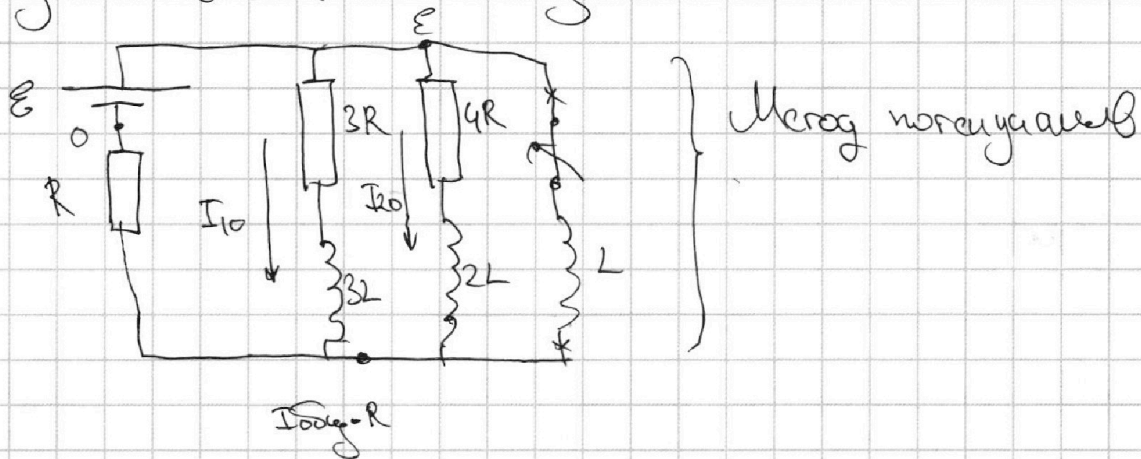 ε
ε
0
3R
4R
R
I₁₀
I₂₀
3L
2L
L
Метод потенциалов
Iобщ·R